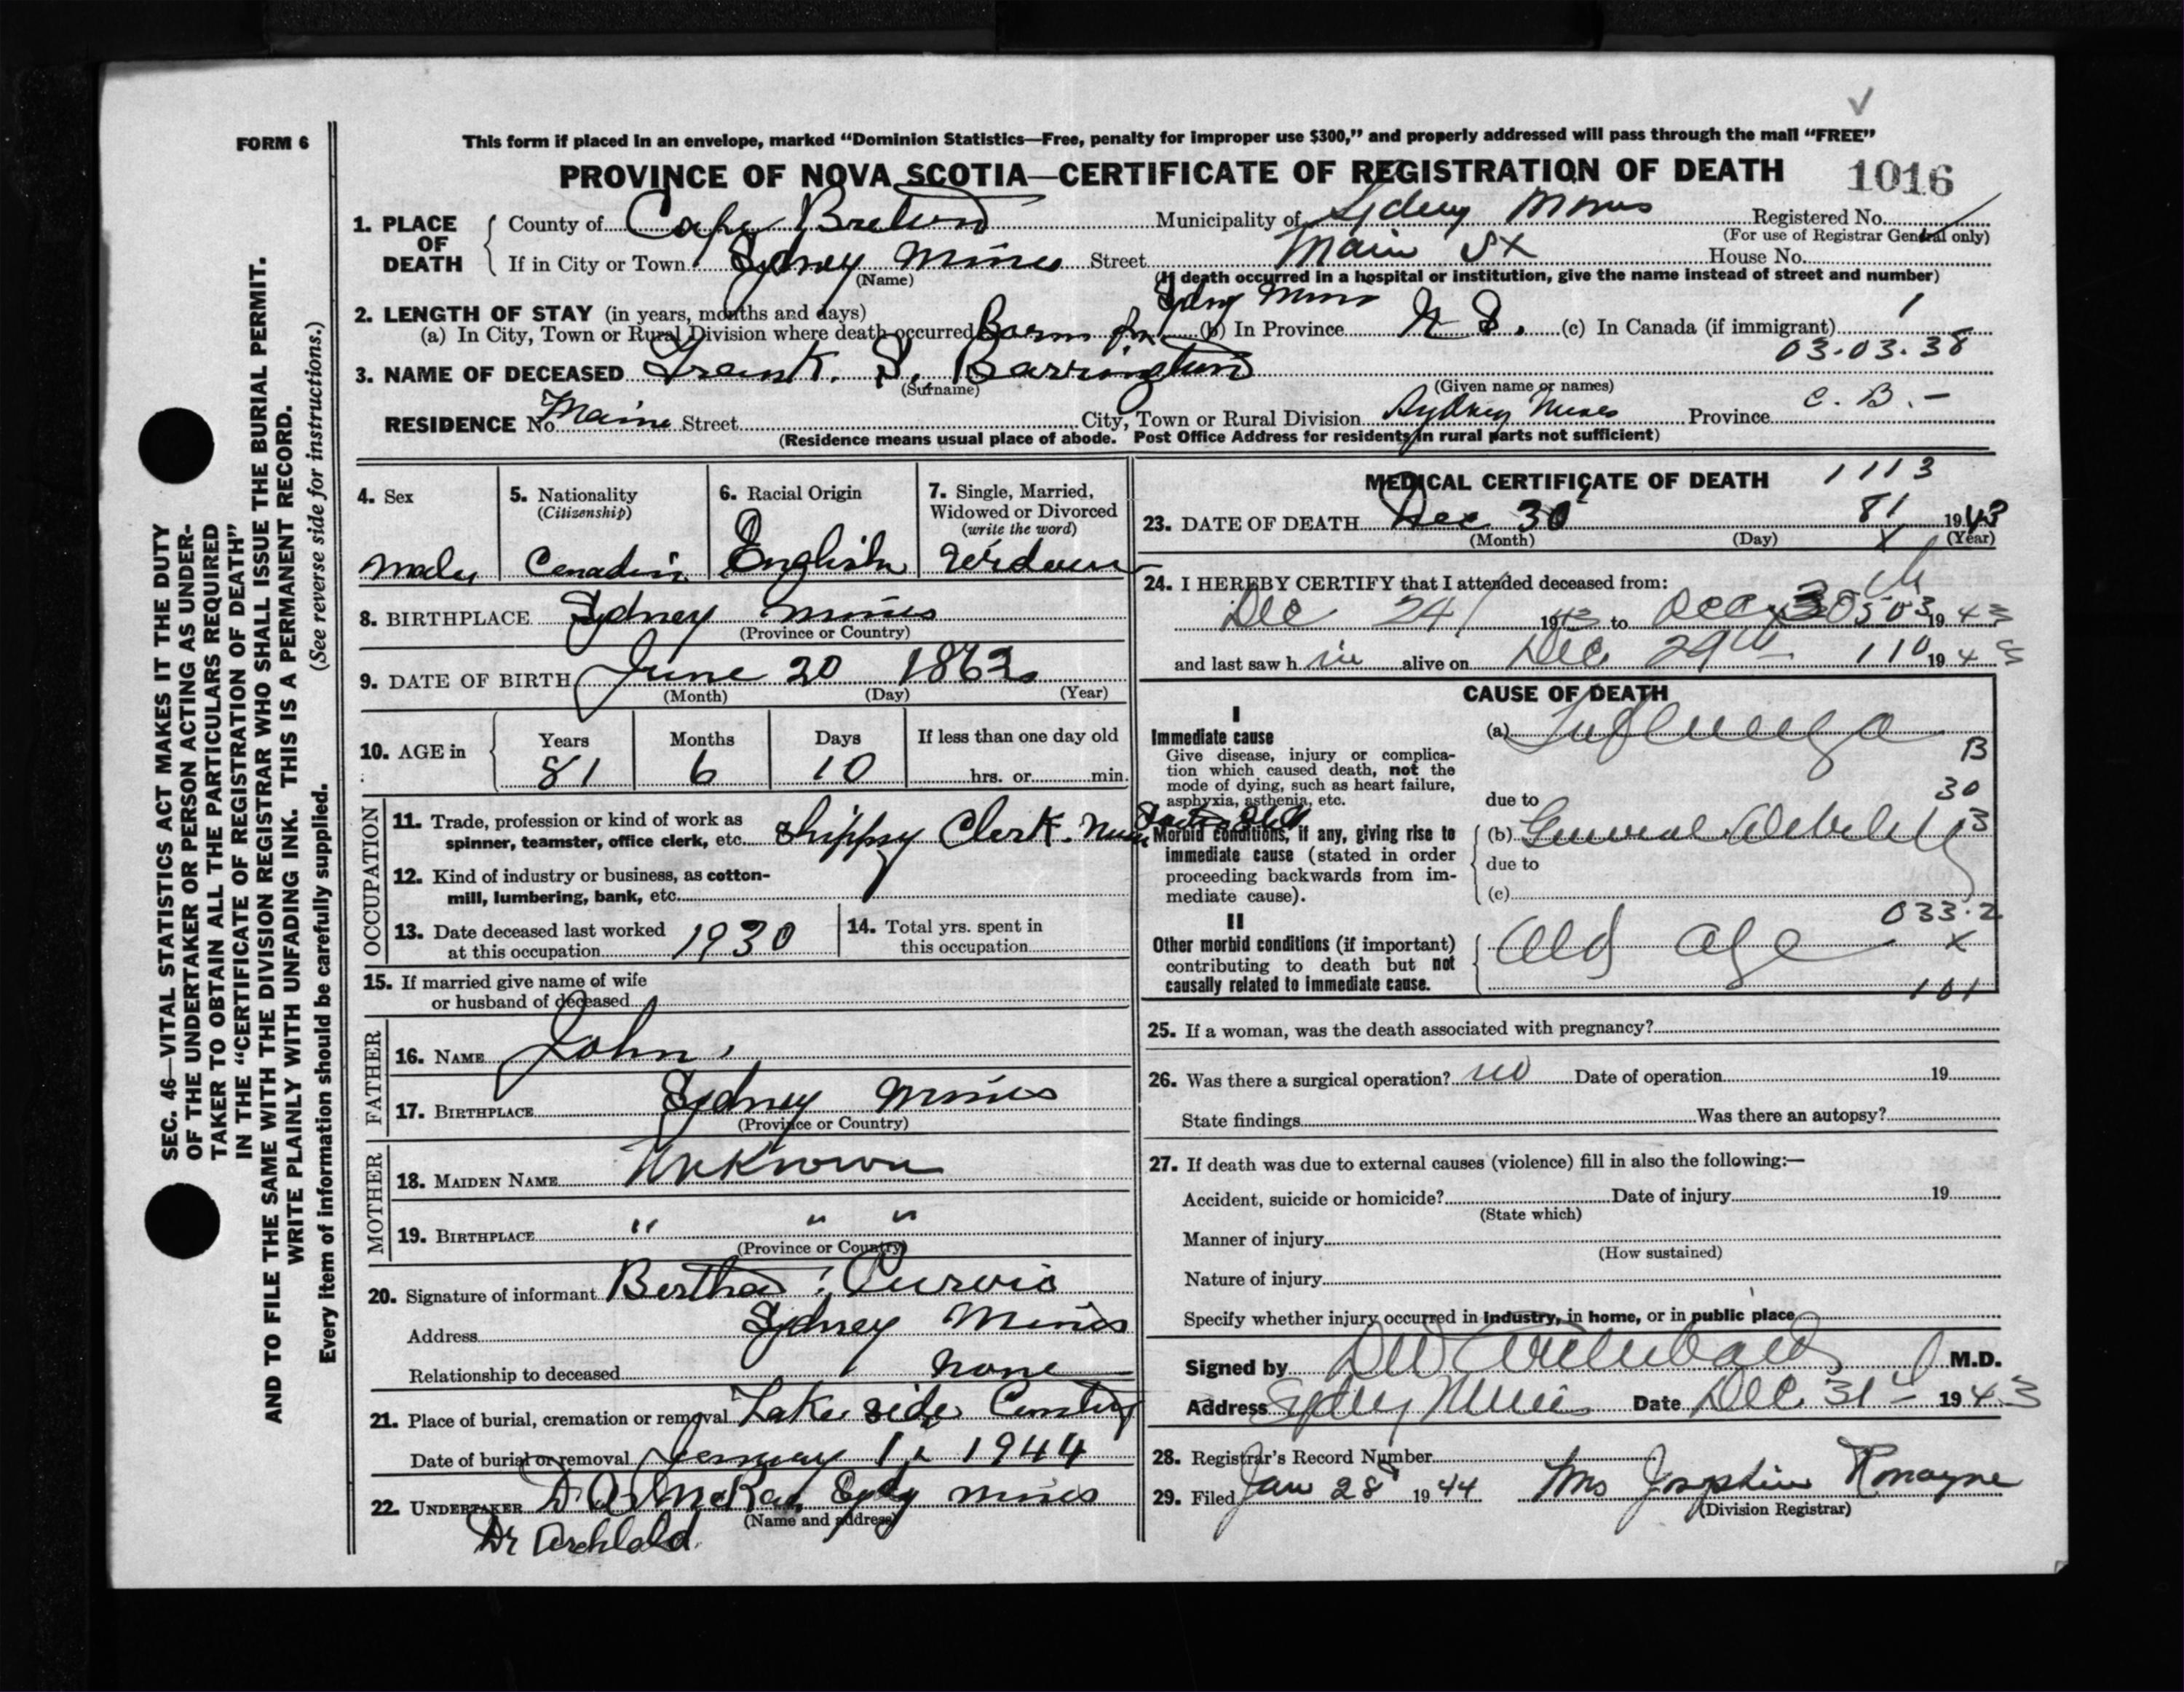 FORM 6
This form if placed in an envelope, marked “Dominion Statistics—Free, penalty for improper use $300,” and properly addressed will pass through the mail “FREE”
PROVINCE OF NOVA SCOTIA—CERTIFICATE OF REGISTRATION OF DEATH 1016
1. PLACE OF DEATH County of Cape Breton Municipality of Sydney Mines Registered No.
(For use of Registrar General only)
If in City or Town Sydney Mines Street Main St House No.
(Name) (If death occurred in a hospital or institution, give the name instead of street and number)
2. LENGTH OF STAY (in years, months and days)
Sydney Mines
(a) In City, Town or Rural Division where death occurred Born in (b) In Province N S. (c) In Canada (if immigrant) 1
03.03.38
3. NAME OF DECEASED Frank. S. Barrington
(Surname) (Given name or names)
RESIDENCE No. Maine Street City, Town or Rural Division Sydney Mines Province C. B. -
(Residence means usual place of abode. Post Office Address for residents in rural parts not sufficient)
4. Sex 5. Nationality (Citizenship) 6. Racial Origin 7. Single, Married, Widowed or Divorced (write the word)
Male Canadian English Widower
8. BIRTHPLACE Sydney Mines
(Province or Country)
9. DATE OF BIRTH June 20 1862
(Month) (Day) (Year)
10. AGE in Years Months Days If less than one day old
81 6 10 hrs. or min.
OCCUPATION
11. Trade, profession or kind of work as spinner, teamster, office clerk, etc. Shippy Clerk.
12. Kind of industry or business, as cotton-mill, lumbering, bank, etc.
13. Date deceased last worked at this occupation 1930
14. Total yrs. spent in this occupation
15. If married give name of wife or husband of deceased
FATHER
16. NAME John
17. BIRTHPLACE Sydney Mines
(Province or Country)
MOTHER
18. MAIDEN NAME Unknown
19. BIRTHPLACE " " "
(Province or Country)
20. Signature of informant Bertha Purvis
Address Sydney Mines
Relationship to deceased none
21. Place of burial, cremation or removal Lake side Cemetery
Date of burial or removal January 1, 1944
22. UNDERTAKER D A McKay Sydy Mines
(Name and address)
Dr Archbald
MEDICAL CERTIFICATE OF DEATH 1113
23. DATE OF DEATH Dec 30 81 1943
(Month) (Day) X (Year)
24. I HEREBY CERTIFY that I attended deceased from:
Dec 24 1943 to Dec 30 503 1943
and last saw h im alive on Dec 29th 110 1943
CAUSE OF DEATH
I
Immediate cause
Give disease, injury or complication which caused death, not the mode of dying, such as heart failure, asphyxia, asthenia, etc.
(a) Influenza
B
30
due to
Morbid conditions, if any, giving rise to immediate cause (stated in order proceeding backwards from immediate cause).
(b) General Debility 13
due to
(c)
033.2
II
Other morbid conditions (if important) contributing to death but not causally related to immediate cause.
Old age X
101
25. If a woman, was the death associated with pregnancy?
26. Was there a surgical operation? no Date of operation 19
State findings Was there an autopsy?
27. If death was due to external causes (violence) fill in also the following:—
Accident, suicide or homicide? Date of injury 19
(State which)
Manner of injury
(How sustained)
Nature of injury
Specify whether injury occurred in industry, in home, or in public place
Signed by DW Archibald M.D.
Address Sydney Mines Date Dec. 31st 1943
28. Registrar's Record Number
29. Filed Jan 28 1944 Mrs Josephine Romayne
(Division Registrar)
SEC. 46—VITAL STATISTICS ACT MAKES IT THE DUTY
OF THE UNDERTAKER OR PERSON ACTING AS UNDER-
TAKER TO OBTAIN ALL THE PARTICULARS REQUIRED
IN THE “CERTIFICATE OF REGISTRATION OF DEATH”
AND TO FILE THE SAME WITH THE DIVISION REGISTRAR WHO SHALL ISSUE THE BURIAL PERMIT.
WRITE PLAINLY WITH UNFADING INK. THIS IS A PERMANENT RECORD.
Every item of information should be carefully supplied. (See reverse side for instructions.)